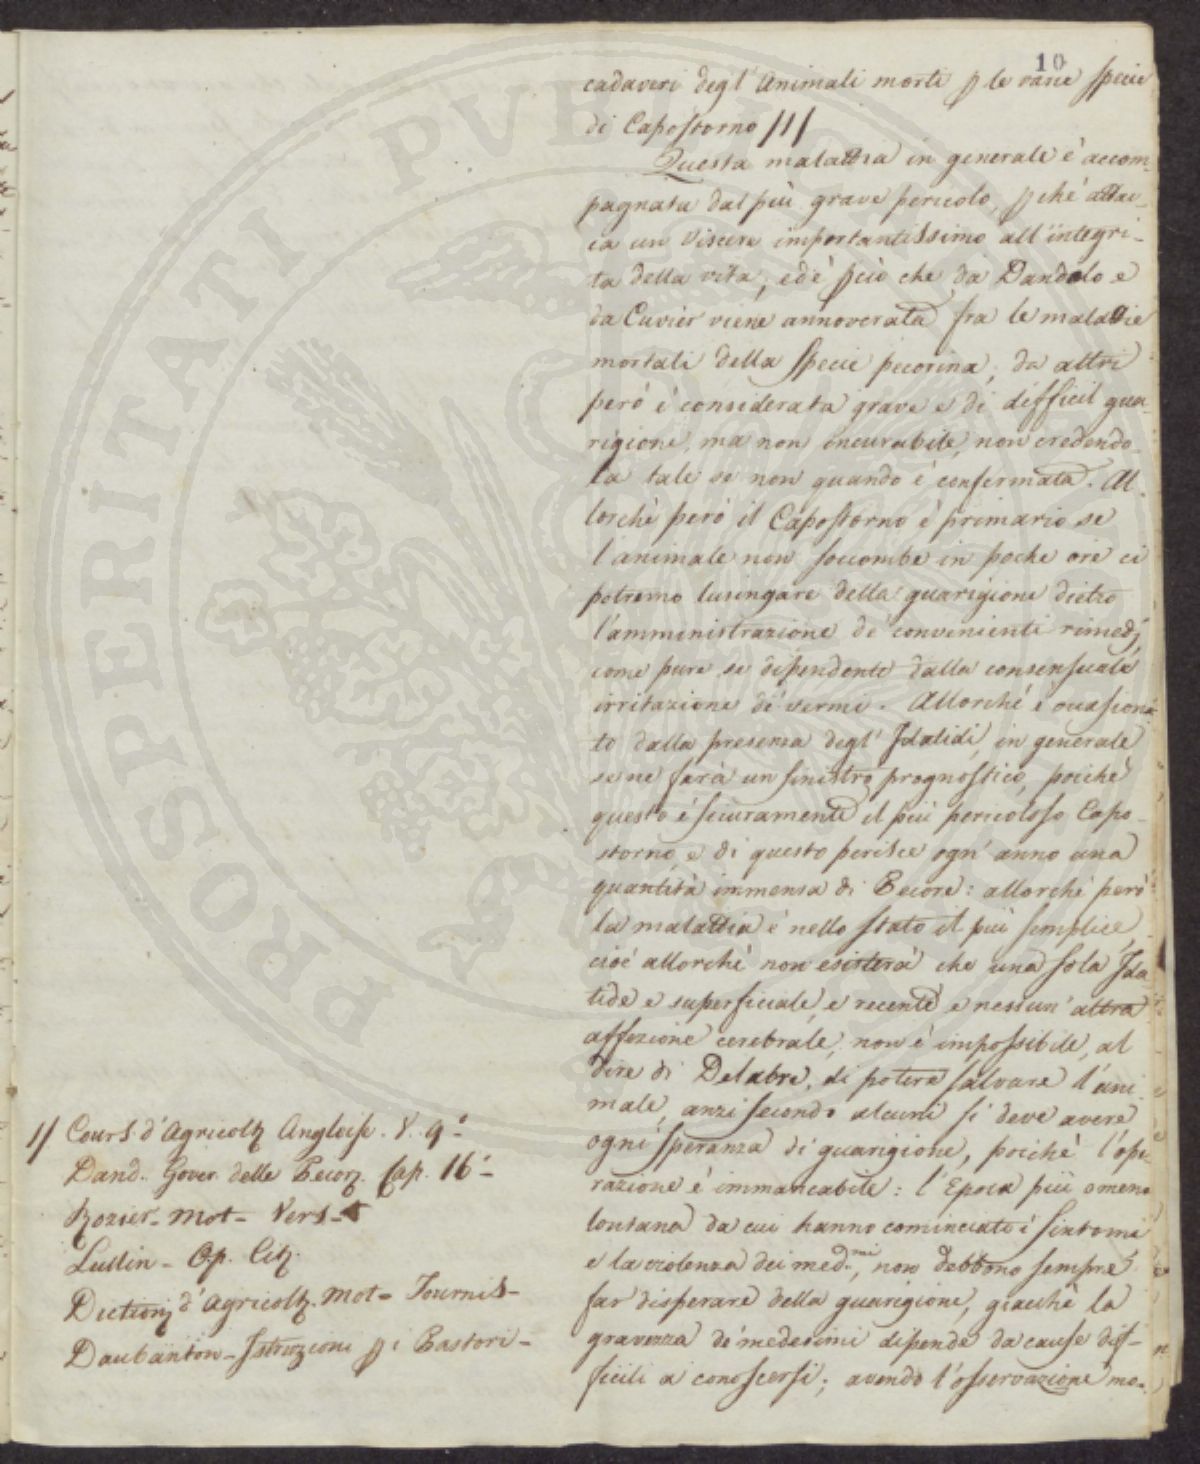 10
cadaveri degl'Animali morti p le varie specie
di Capostorno /1/
Questa malattia in generale è accom-
pagnata dal più grave pericolo, pchè attac-
ca un Viscere importantissimo all'integri-
tà della vita, ed è pciò che da Dandolo e
da Cuvier viene annoverata fra le malattie
mortali della specie pecorina; da altri
però è considerata grave e di difficil gua-
rigione, ma non incurabile, non credendo-
la tale se non quando è confermata. Al-
lorchè però il Capostorno è primario se
l'animale non soccombe in poche ore ci
potremo lusingare della guarigione dietro
l'amministrazione de' convenienti rimedj
come pure se dipendente dalla consensuale
irritazione de' vermi. Allorchè è occasiona-
to dalla presenza degl'Idatidi, in generale
se ne farà un sinistro prognostico, poichè
questo è sicuramente il più pericoloso Capo-
storno, e di questo perisce ogn'anno una
quantità immensa di Pecore: allorchè però
la malattia è nello stato il più semplice,
cioè allorchè non esisterà che una sola Ida-
tide e superficiale, e recente e nessun'altra
affezione cerebrale, non è impossibile, al
dire di Delabre, di potere salvare l'ani-
male, anzi secondo alcuni si deve avere
ogni speranza di guarigione, poichè l'ope-
razione è immancabile: l'Epoca più o meno
lontana da cui hanno cominciato i sintomi
e la violenza dei med.mi, non debbono sempre
far disperare della guarigione, giacchè la
gravezza de' medesimi dipende da cause dif-
ficili a conoscersi; avendo l'osservazione mo-
1/ Cours d'Agricolt Angloise. V. 9.°
Dand. Gover. delle Pecor. Cap. 16°-
Rozier- Mot- Vers-
Lullin- Op. Cit.
Diction d'Agricolt. Mot- Tournis-
Daubanton- Istruzioni p i Pastori-
PROSPERITATI PVBLICAE